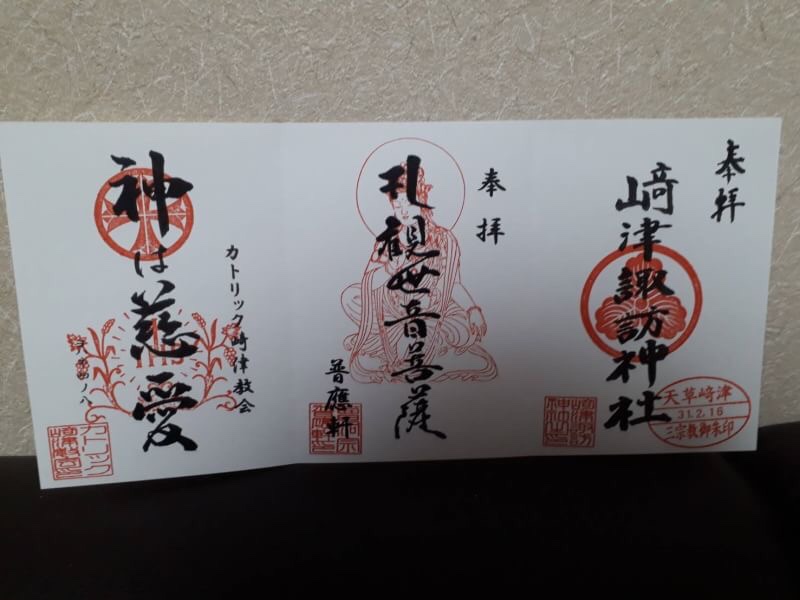 奉拝
﨑津諏訪神社
天草﨑津
31.2.16
三宗教御朱印
奉拝
南無観世音菩薩
普應軒
神は慈愛
カトリック﨑津教会
カトリック